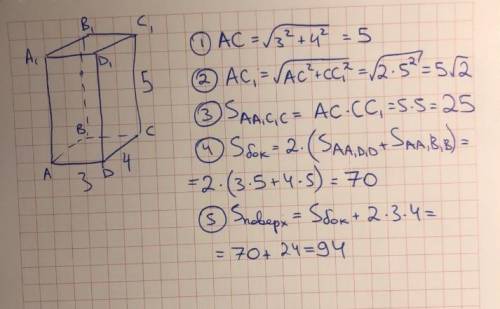 B₁
C₁
A₁
D₁
5
B
C
A
D
4
3
① AC = √3² + 4² = 5
② AC₁ = √AC² + CC₁² = √2 · 5² = 5√2
③ S_AA₁C₁C = AC · CC₁ = 5 · 5 = 25
④ Sбок = 2 · (S_AA₁D₁D + S_AA₁B₁B) =
= 2 · (3 · 5 + 4 · 5) = 70
⑤ Sповерх = Sбок + 2 · 3 · 4 =
= 70 + 24 = 94